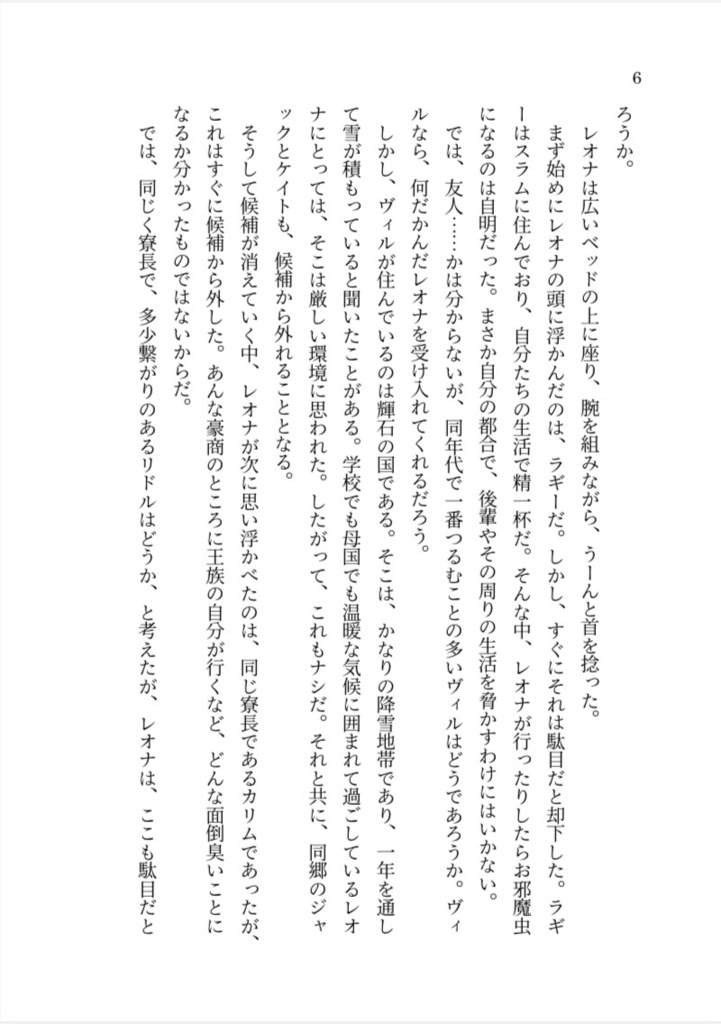 6
ろうか。
レオナは広いベッドの上に座り、腕を組みながら、うーんと首を捻った。
まず始めにレオナの頭に浮かんだのは、ラギーだ。しかし、すぐにそれは駄目だと却下した。ラギ
ーはスラムに住んでおり、自分たちの生活で精一杯だ。そんな中、レオナが行ったりしたらお邪魔虫
になるのは自明だった。まさか自分の都合で、後輩やその周りの生活を脅かすわけにはいかない。
では、友人……かは分からないが、同年代で一番つるむことの多いヴィルはどうであろうか。ヴィ
ルなら、何だかんだレオナを受け入れてくれるだろう。
しかし、ヴィルが住んでいるのは輝石の国である。そこは、かなりの降雪地帯であり、一年を通し
て雪が積もっていると聞いたことがある。学校でも母国でも温暖な気候に囲まれて過ごしているレオ
ナにとっては、そこは厳しい環境に思われた。したがって、これもナシだ。それと共に、同郷のジャ
ックとケイトも、候補から外れることとなる。
そうして候補が消えていく中、レオナが次に思い浮かべたのは、同じ寮長であるカリムであったが、
これはすぐに候補から外した。あんな豪商のところに王族の自分が行くなど、どんな面倒臭いことに
なるか分かったものではないからだ。
では、同じく寮長で、多少繋がりのあるリドルはどうか、と考えたが、レオナは、ここも駄目だと